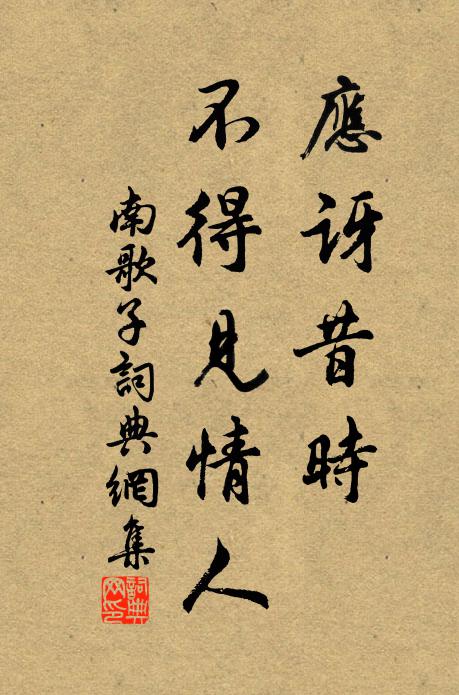 應訝昔時
不得見情人
南歌子詞典網集
詞典网印